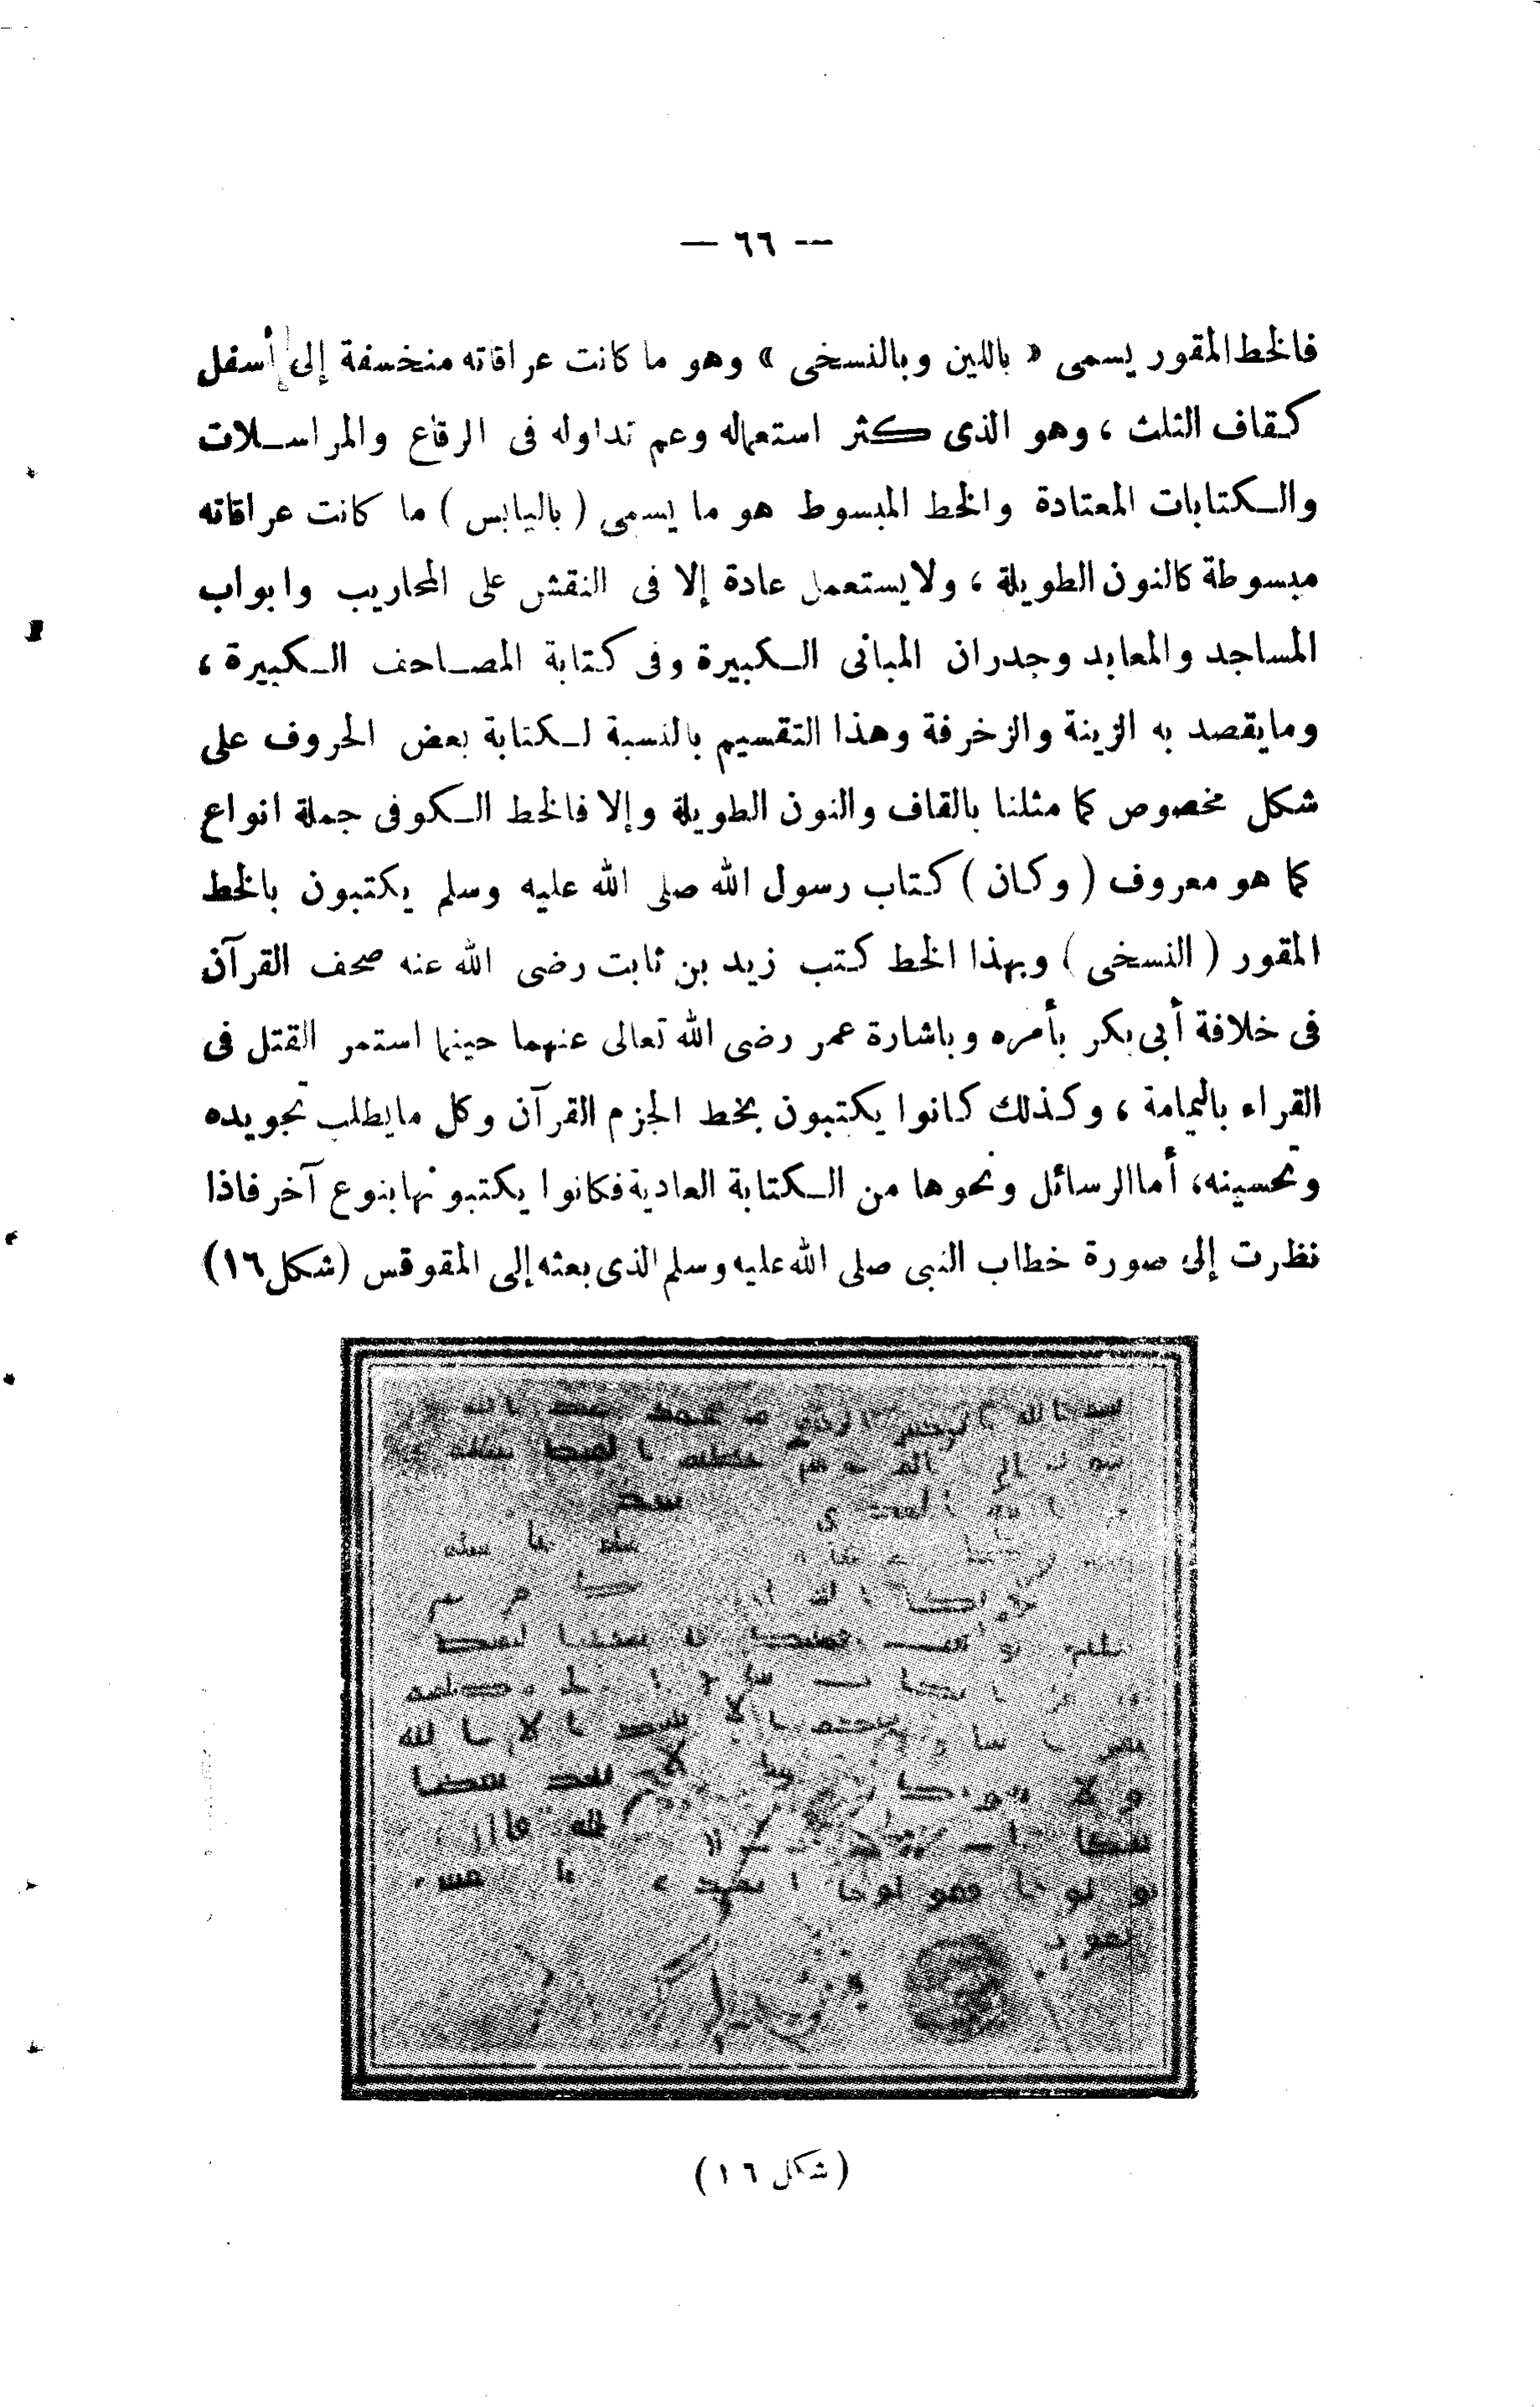 — ٦٦ —
فالخط المقور يسمى « باللين وبالنسخى » وهو ما كانت عراقاته منخسفة إلى أسفل
كقاف الثلث ، وهو الذى كثر استعماله وعم تداوله فى الرقاع والمراسلات
والكتابات المعتادة والخط المبسوط هو ما يسمى ( باليابس ) ما كانت عراقاته
مبسوطة كالنون الطويلة ، ولا يستعمل عادة إلا فى النقش على المحاريب وابواب
المساجد والمعابد وجدران المبانى الكبيرة وفى كتابة المصاحف الكبيرة ،
وما يقصد به الزينة والزخرفة وهذا التقسيم بالنسبة لكتابة بعض الحروف على
شكل مخصوص كما مثلنا بالقاف والنون الطويلة وإلا فالخط الكوفى جملة انواع
كما هو معروف ( وكان ) كتاب رسول الله صلى الله عليه وسلم يكتبون بالخط
المقور ( النسخى ) وبهذا الخط كتب زيد بن ثابت رضى الله عنه صحف القرآن
فى خلافة أبى بكر بأمره وباشارة عمر رضى الله تعالى عنهما حينما استمر القتل فى
القراء باليمامة ، وكذلك كانوا يكتبون بخط الجزم القرآن وكل ما يطلب تجويده
وتحسينه، أما الرسائل ونحوها من الكتابة العادية فكانوا يكتبونها بنوع آخر فاذا
نظرت إلى صورة خطاب النبى صلى الله عليه وسلم الذى بعثه إلى المقوقس (شكل ١٦)
(شكل ١٦)